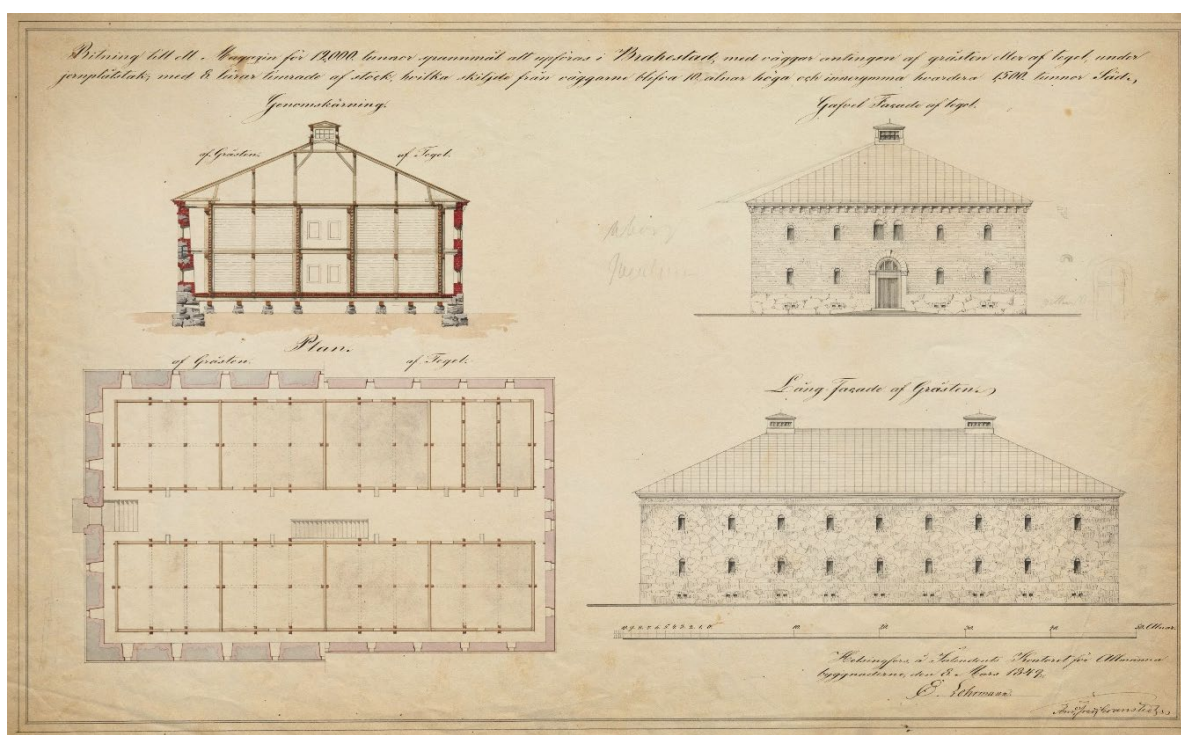 Ritning till ett Magazin för 12,000 tunnor spannmål att uppföras i Brahestad, med väggar antingen af gråsten eller af tegel, under
jernplåttak, med 8 lårar timrade af stock, hvilka skiljde från väggarne blefva 10 alnar höga och innerymma hvardera 1,500 tunnor Säd.
Genomskärning.
af Gråsten.
af Tegel.
Gafvel Façade af tegel.
Plan.
af Gråsten.
af Tegel.
Lång façade af Gråsten.
10. 9. 8. 7. 6. 5. 4. 3. 2. 1. 0. 10. 20. 30. 40. 50. Alnar.
Helsingfors å Intendents Kontoret för Allmänna
byggnaderne, den 8 Mars 1849.
Granstedt